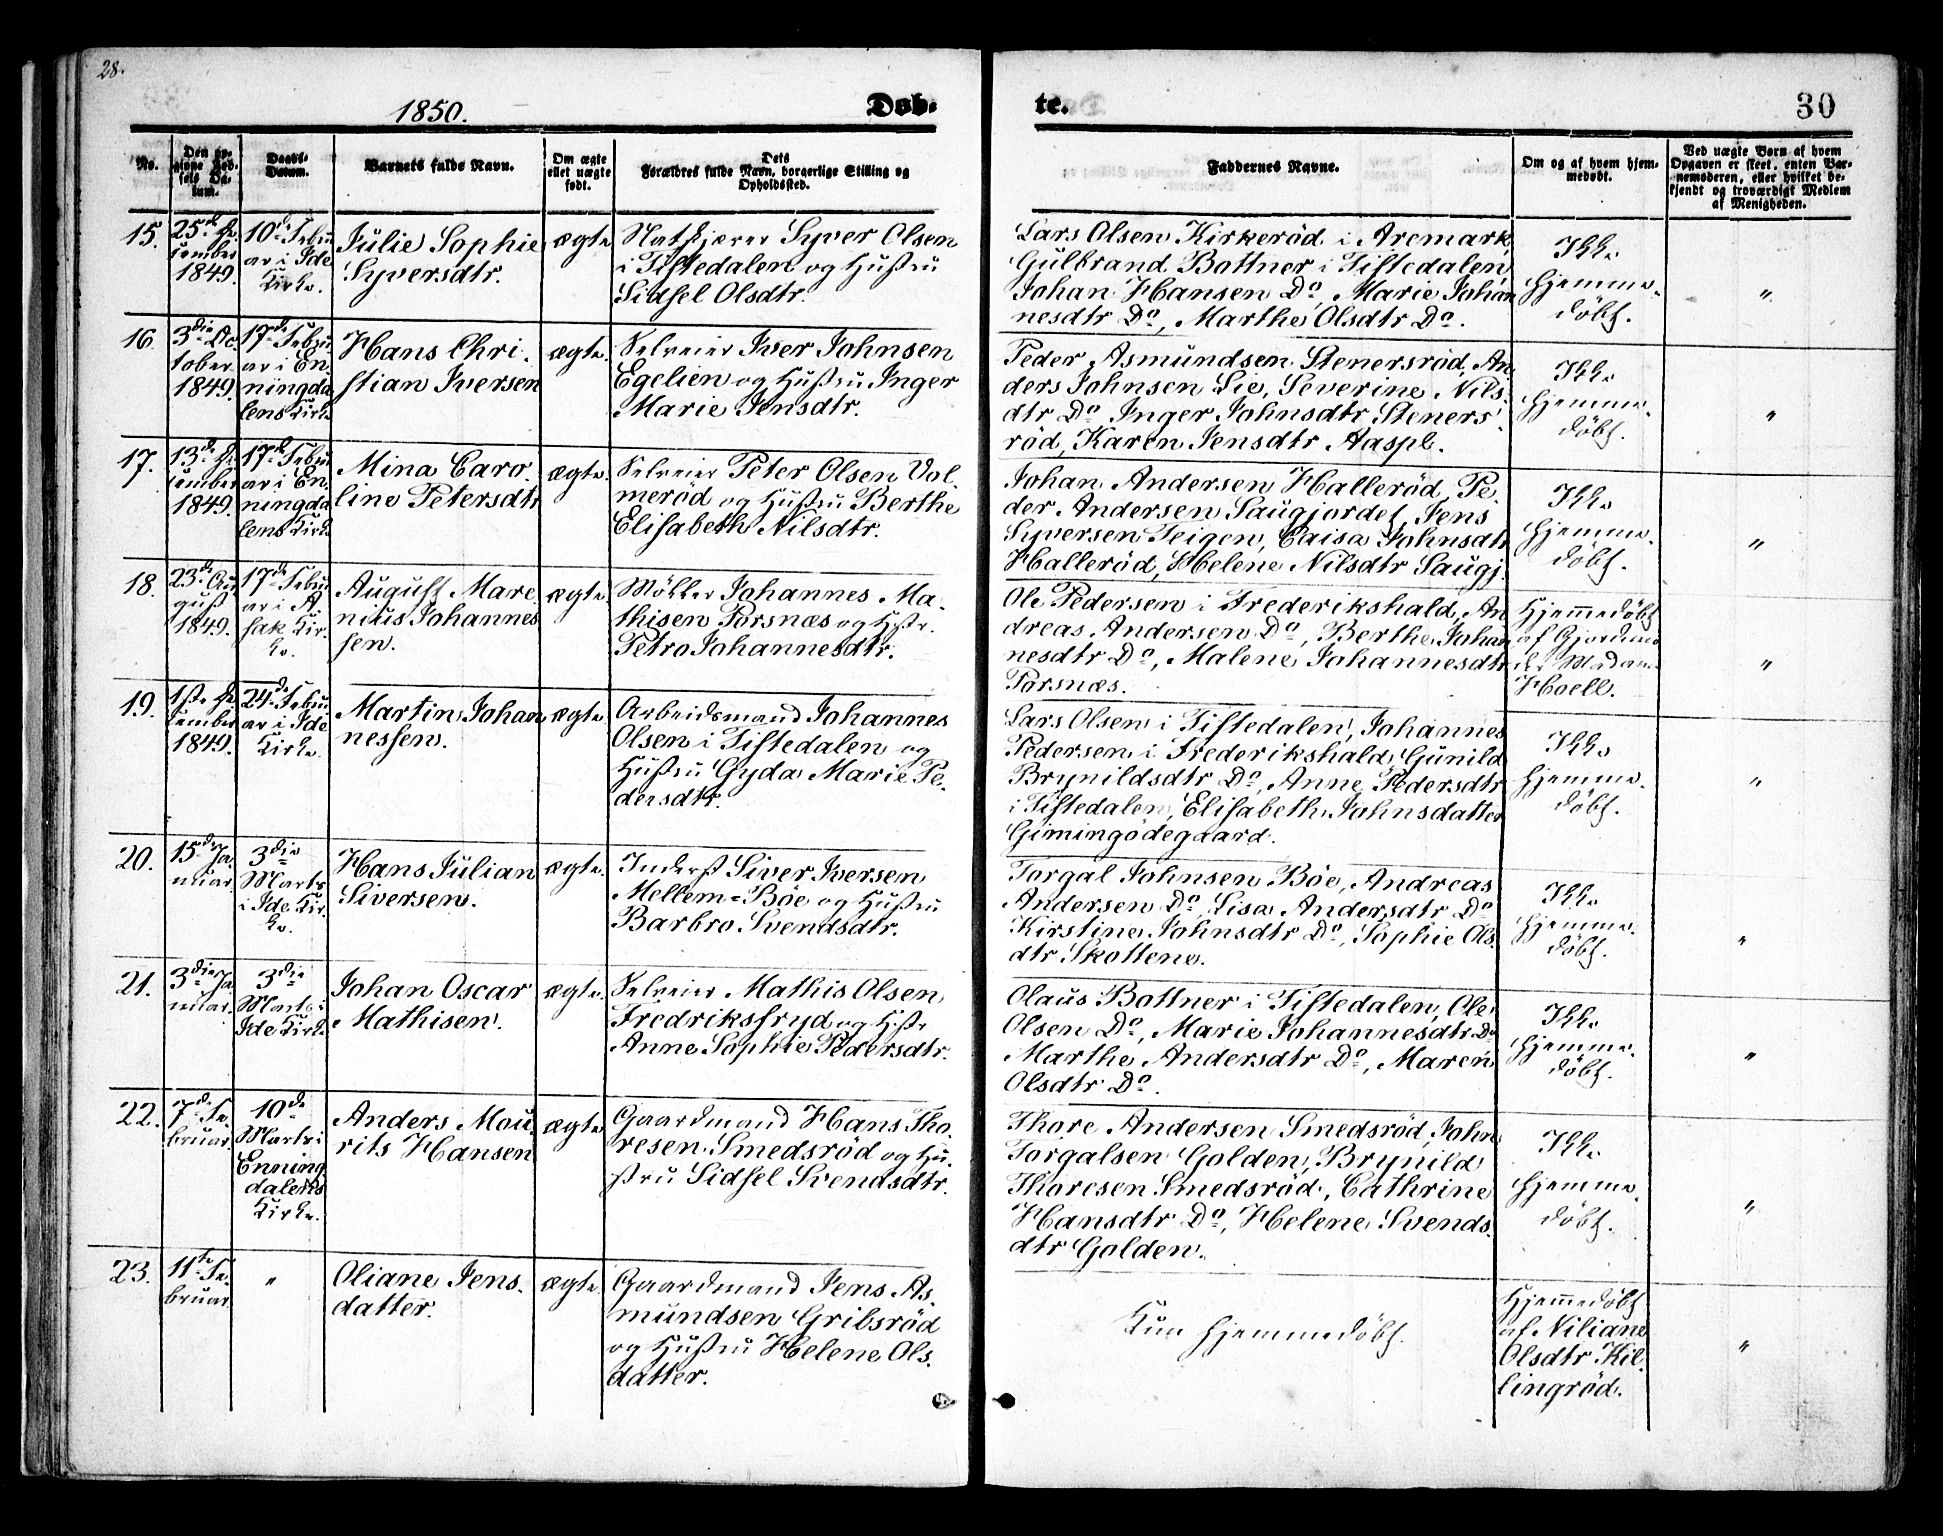 28.
1850.
Døb-
te.
30
No.
Den op-
givne Fød-
sels Da-
tum.
Daabs-
Datum.
Barnets fulde Navn.
Om ægte
eller uægte
født.
Dets
Forældres fulde Navn, borgerlige Stilling og
Opholdssted.
Faddernes Navne.
Om og af hvem hjem-
medøbt.
Ved uægte Børn af hvem
Opgaven er skeet, enten Bar-
nemoderen, eller hvilket be-
kjendt og troværdigt Medlem
af Menigheden.
15.
25de De
cember
1849.
10de Febru
ar i Ide
Kirke.
Julie Sophie
Syversdtr.
ægte
Natkjører Syver Olsen
i Tistedalen og Hustru
Sidsel Olsdtr.
Lars Olsen Kirkeröd i Aremark
Gulbrand Bottner i Tistedalen
Johan Hansen Do, Marie Johan
nesdtr Do, Marthe Olsdtr Do.
Ikke
hjemme-
döbt.
"
16.
3die Oc
tober
1849.
17de Febru
ar i En
ningda
lens Kirke
Hans Chri-
stian Iversen
ægte.
Selveier Iver Johnsen
Egelien og Hustru Inger
Marie Jensdtr.
Peder Asmundsen Stenersröd, An
ders Johnsen Lie, Severine Nils-
dtr Do Inger Johnsdtr Steners-
röd, Karen Jensdtr Aaspl.
Ikke
hjemme-
döbt.
"
17.
13de De
cember
1849.
17de Febru
ar i En
ningda
lens Kirke
Mina Caro-
line Petersdtr
ægte.
Selveier Peter Olsen Vol-
meröd og Hustru Berthe
Elisabeth Nilsdtr.
Johan Andersen Halleröd, Pe-
der Andersen Saugjordet, Jens
Syversen Teigen, Caisa Johnsdtr
Halleröd, Helene Nilsdtr Saugj.
Ikke
hjemme-
döbt.
"
18.
23de Au
gust
1849.
17de Febru
ar i A
sak Kir-
ke.
August Mare
nius Johannes
sen.
ægte.
Möller Johannes Ma-
thisen Porsnæs og Hstr.
Petro Johannesdtr.
Ole Pedersen i Frederikshald, An
dreas Andersen Do, Berthe Johan
nesdtr Do, Malene Johannesdtr
Porsnæs.
Hjemmedöbt
af Gjordmo
der Madam
Hoell.
"
19.
1ste De
cember
1849.
24de Febru
ar i Ide
Kirke.
Martin Johan
nessen.
ægte.
Arbeidsmand Johannes
Olsen i Tistedalen og
Hustru Gyda Marie Pe-
dersdtr.
Lars Olsen i Tistedalen, Johannes
Pedersen i Frederikshald, Gunild
Brynildsdtr Do, Anne Pedersdtr
i Tistedalen, Elisabeth Johnsdatter
Gimingödegaard.
Ikke
hjemme-
döbt.
"
20.
15de Ja-
nuar.
3die
Marts
i Ide Kir-
ke.
Hans Julian
Siversen.
ægte.
Inderst Siver Iversen
Mellem-Böe og Hustru
Barbro Svendsdtr.
Torgal Johnsen Böe, Andreas
Andersen Do, Lisa Andersdtr Do
Kirstine Johnsdtr Do, Sophie Ols-
dtr Skottene.
Ikke
hjemme-
döbt.
"
21.
3die Ja-
nuar.
3die
Marts i
Ide Kirke.
Johan Oscar
Mathisen.
ægte.
Selveier Mathis Olsen
Fredriksfryd og Hstr
Anne Sophie Pedersdtr.
Olaus Bottner i Tistedalen, Ole
Olsen Do, Marie Johannesdtr Do
Marthe Andersdtr Do, Maren
Olsdtr Do.
Ikke
hjemme-
döbt.
"
22.
7de Fe-
bruar.
10de
Marts i
Enning
dalens
Kirke.
Anders Mou-
rits Hansen
ægte
Gaardmand Hans Tho-
resen Smedsröd og Hu-
stru Sidsel Svendsdtr.
Thore Andersen Smedsröd, John
Torgalsen Golden, Brynild
Thoresen Smedsröd, Cathrine
Hansdtr Do, Helene Svends-
dtr Golden.
Ikke
hjemme-
döbt.
"
23.
11te Fe-
bruar.
"
Oliane Jens-
datter.
ægte.
Gaardmand Jens As-
mundsen Gribsröd
og Hustru Helene Ols-
datter.
Kun hjemmedöbt.
Hjemmedöbt
af Niliane
Olsdtr Kil-
lingröd.
"